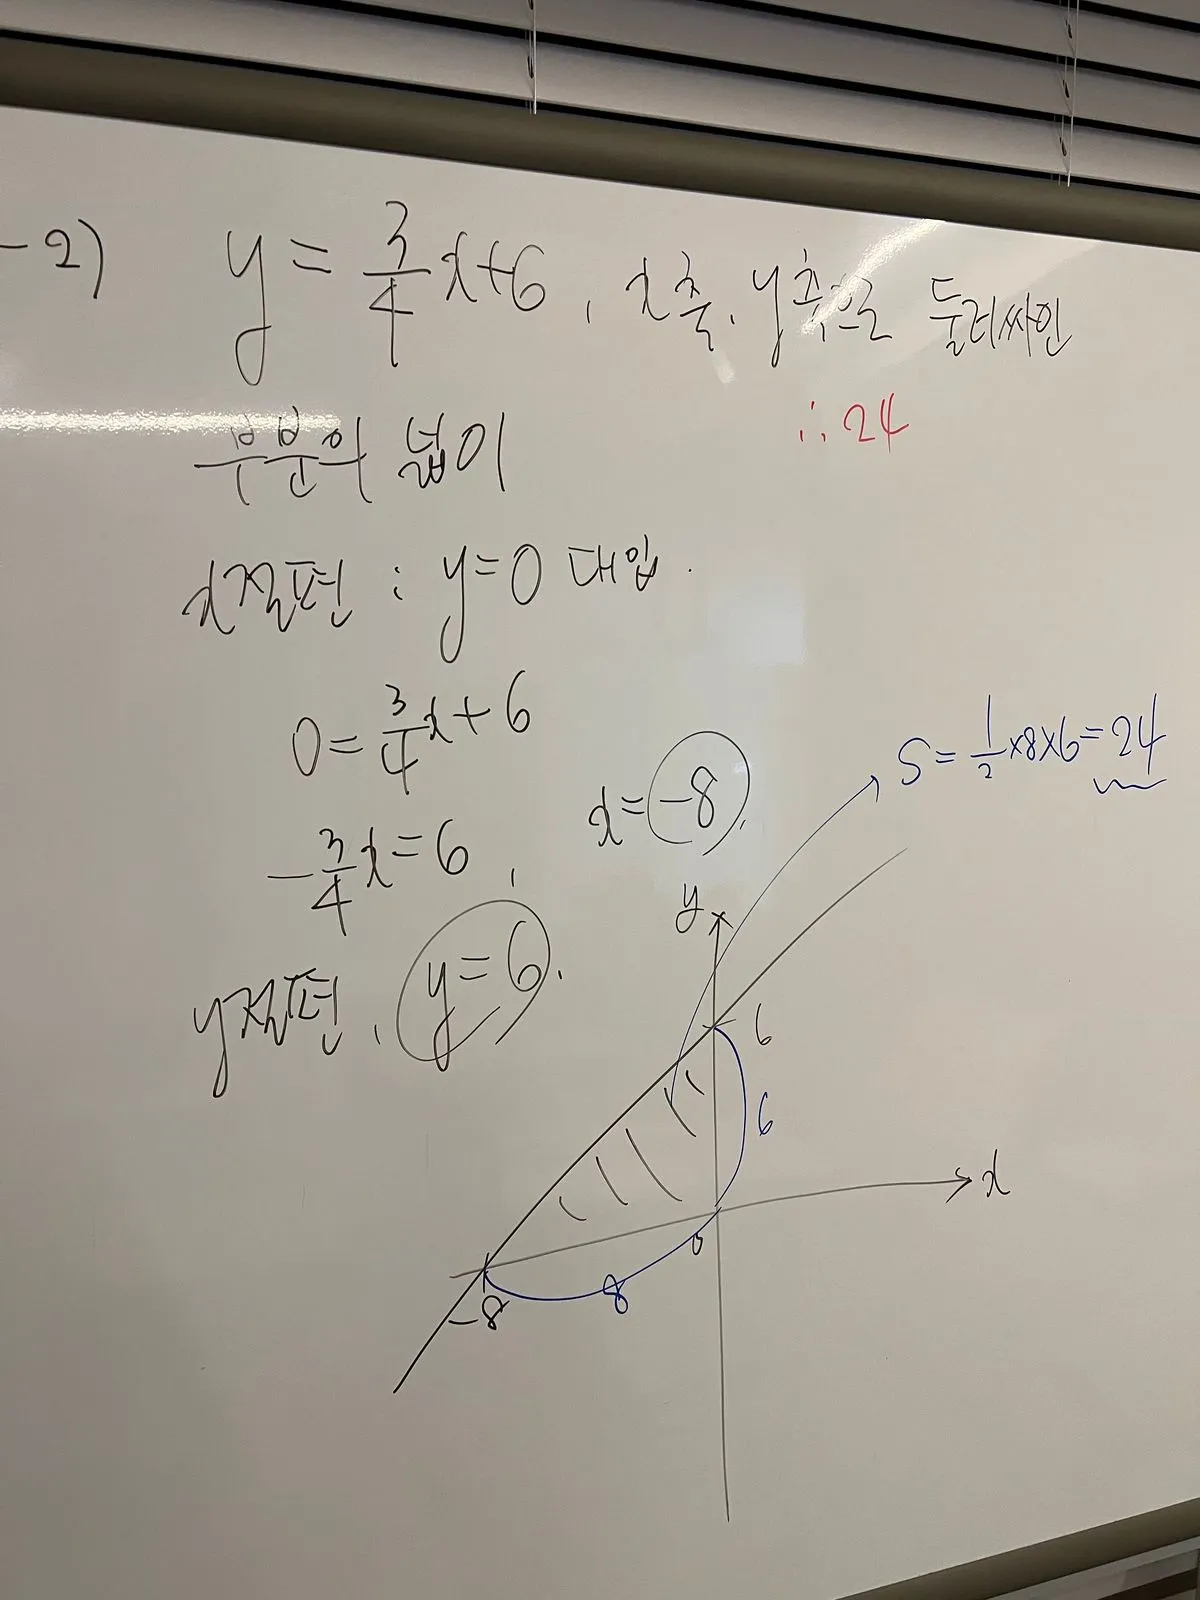 -2) y = 3/4 x+6, x축, y축으로 둘러싸인
부분의 넓이
∴ 24
x절편 : y=0 대입.
0 = 3/4 x + 6
- 3/4 x = 6, x = -8,
y절편, y = 6.
S = 1/2 × 8 × 6 = 24
y
6
6
x
0
8
-8